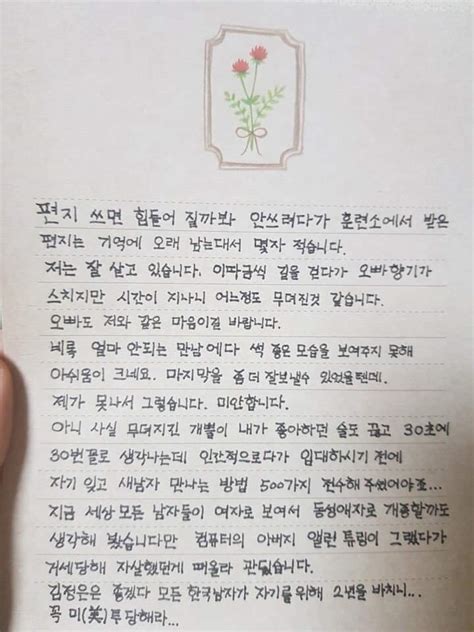 편지 쓰면 힘들어 질까봐 안쓰려다가 훈련소에서 받은
편지는 기억에 오래 남는대서 몇자 적습니다.
저는 잘 살고 있습니다. 이따금씩 길을 걷다가 오빠향기가
스치지만 시간이 지나니 어느정도 무뎌진것 같습니다.
오빠도 저와 같은 마음이길 바랍니다.
비록 얼마 안되는 만남에다 썩 좋은 모습을 보여주지 못해
아쉬움이 크네요. 마지막을 좀 더 잘보낼수 있었을텐데.
제가 못나서 그렇습니다. 미안합니다.
아니 사실 무뎌지긴 개뿔이 내가 좋아하던 술도 끊고 30초에
30번꼴로 생각나는데 인간적으로다가 입대하시기 전에
자기 잊고 새남자 만나는 방법 500가지 전수해 주셨어야죠...
지금 세상 모든 남자들이 여자로 보여서 동성애자로 개종할까도
생각해 봤습니다만 컴퓨터의 아버지 앨런 튜링이 그랬다가
거세당해 자살했던게 떠올라 관뒀습니다.
김정은은 좋겠다 모든 한국남자가 자기를 위해 2년을 바치니...
꼭 미(美)투 당해라...